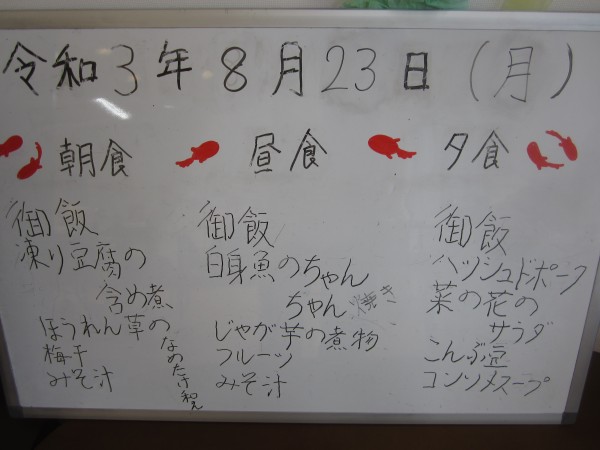 令和3年8月23日(月)
朝食
御飯
凍り豆腐の
含め煮
ほうれん草の
なめたけ和え
梅干
みそ汁
昼食
御飯
白身魚のちゃん
ちゃん焼き
じゃが芋の煮物
フルーツ
みそ汁
夕食
御飯
ハッシュドポーク
菜の花の
サラダ
こんぶ豆
コンソメスープ